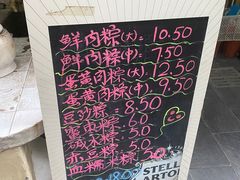 鲜肉粽(大)=10.50
鲜肉粽(中)=7.50
蛋黄肉粽(大)=12.50
蛋黄肉粽(中)=9.50
豆沙粽=8.50
蜜枣粽=6.0
碱水粽=5.0
赤豆粽=6.0
血糯米粽
18.0
STELL
ARTO